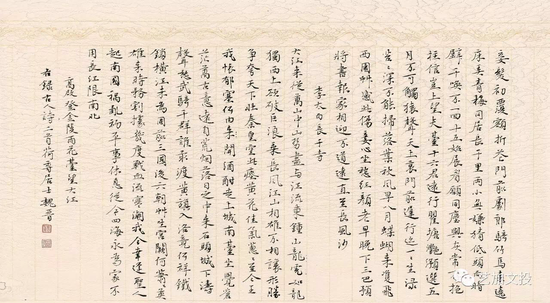 妾髮初覆額折花門前劇郎騎竹馬来遶
床弄青梅同居長干里兩小無嫌猜低頭向暗
壁千喚不一回十五始展眉願同塵與灰常存抱
柱信豈上望夫臺十六君遠行瞿塘灩澦堆五
月不可觸猿聲天上哀門前遲行跡一一生綠
苔苔深不能掃落葉秋風早八月蝴蝶来雙飛
西園草感此傷妾心坐愁紅顏老早晚下三巴預
將書報家相迎不道遠直至長風沙
李太白長干行
大江来從萬山中山勢盡與江流東鍾山如龍
獨西上欲破巨浪乘長風江山相雄不相讓形勝
爭誇天下壯秦皇空此瘞黃金佳氣蔥蔥至今王
我懷鬱塞何由開酒酣走上城南臺坐覺蒼
茫萬古意遠自荒煙落日之中来石頭城下濤
聲怒武騎千群誰敢渡黃旗入洛竟何祥鐵
鎖橫江未為固前三國後六朝草生宮闕何蕭蕭英
雄乘時務割據幾度戰血流寒潮我今幸逢聖人
起南國禍亂初平事休息從今四海永為家不
用長江限南北
高啟登金陵雨花臺望大江
右錄古人詩二首居士魏